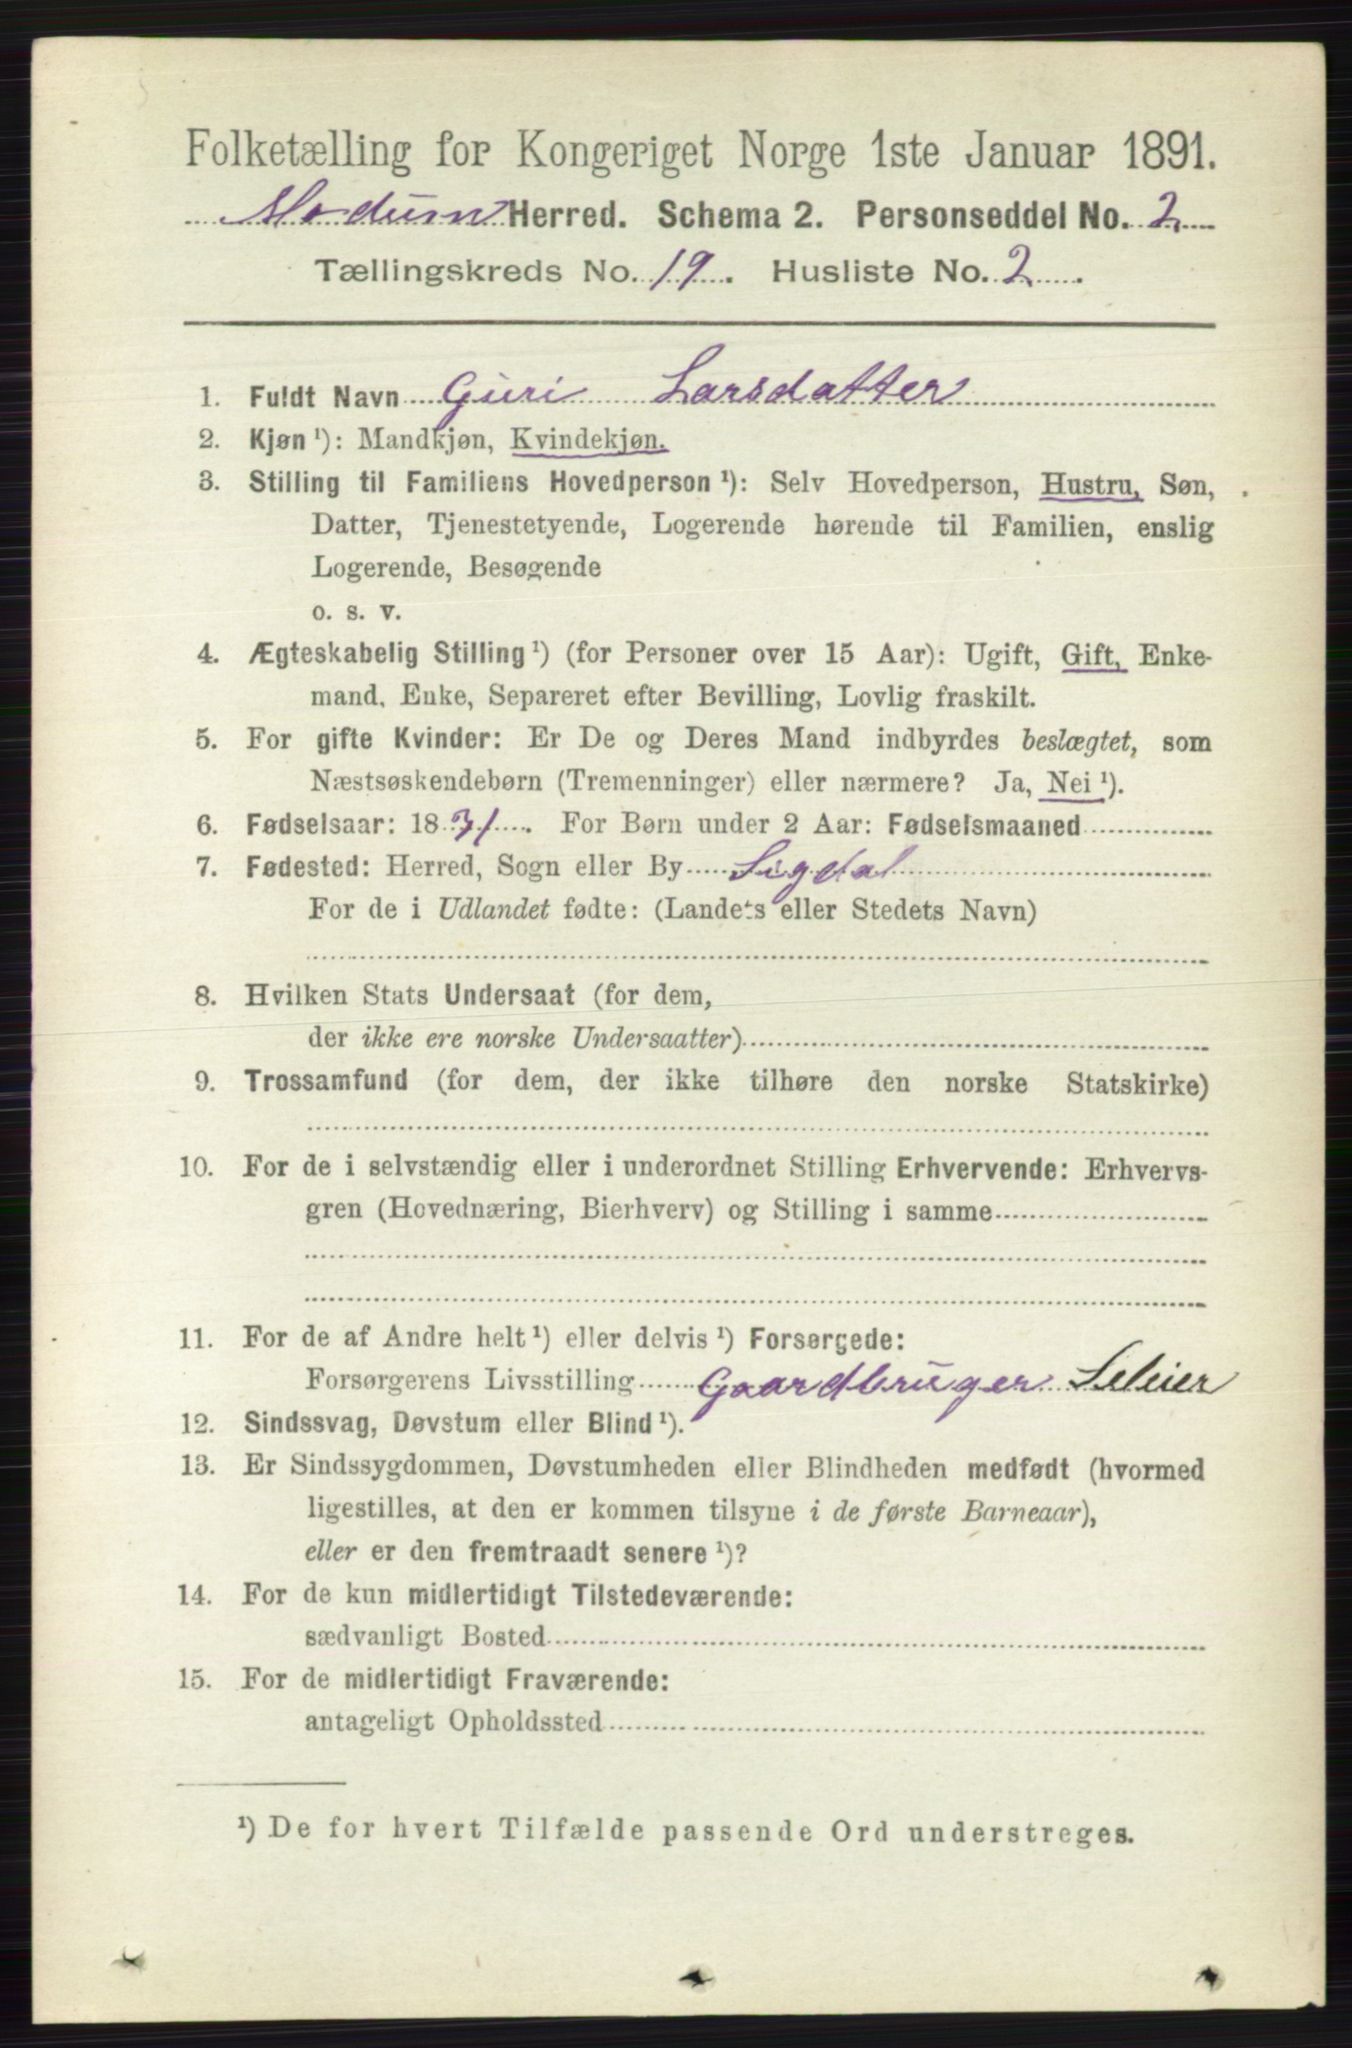 Folketælling for Kongeriget Norge 1ste Januar 1891.
Modum Herred. Schema 2. Personseddel No. 2
Tællingskreds No. 19. Husliste No. 2.
1. Fuldt Navn Guri Larsdatter
2. Kjøn ¹): Mandkjøn, Kvindekjøn.
3. Stilling til Familiens Hovedperson ¹): Selv Hovedperson, Hustru, Søn,
Datter, Tjenestetyende, Logerende hørende til Familien, enslig
Logerende, Besøgende
o. s. v.
4. Ægteskabelig Stilling ¹) (for Personer over 15 Aar): Ugift, Gift, Enke-
mand, Enke, Separeret efter Bevilling, Lovlig fraskilt.
5. For gifte Kvinder: Er De og Deres Mand indbyrdes beslægtet, som
Næstsøskendebørn (Tremenninger) eller nærmere? Ja, Nei ¹).
6. Fødselsaar: 1831. For Børn under 2 Aar: Fødselsmaaned
7. Fødested: Herred, Sogn eller By Sigdal
For de i Udlandet fødte: (Landets eller Stedets Navn)
8. Hvilken Stats Undersaat (for dem,
der ikke ere norske Undersaatter)
9. Trossamfund (for dem, der ikke tilhøre den norske Statskirke)
10. For de i selvstændig eller i underordnet Stilling Erhvervende: Erhvervs-
gren (Hovednæring, Bierhverv) og Stilling i samme
11. For de af Andre helt ¹) eller delvis ¹) Forsørgede:
Forsørgerens Livsstilling Gaardbruger Seleier
12. Sindssvag, Døvstum eller Blind ¹).
13. Er Sindssygdommen, Døvstumheden eller Blindheden medfødt (hvormed
ligestilles, at den er kommen tilsyne i de første Barneaar),
eller er den fremtraadt senere ¹)?
14. For de kun midlertidigt Tilstedeværende:
sædvanligt Bosted
15. For de midlertidigt Fraværende:
antageligt Opholdssted
¹) De for hvert Tilfælde passende Ord understreges.